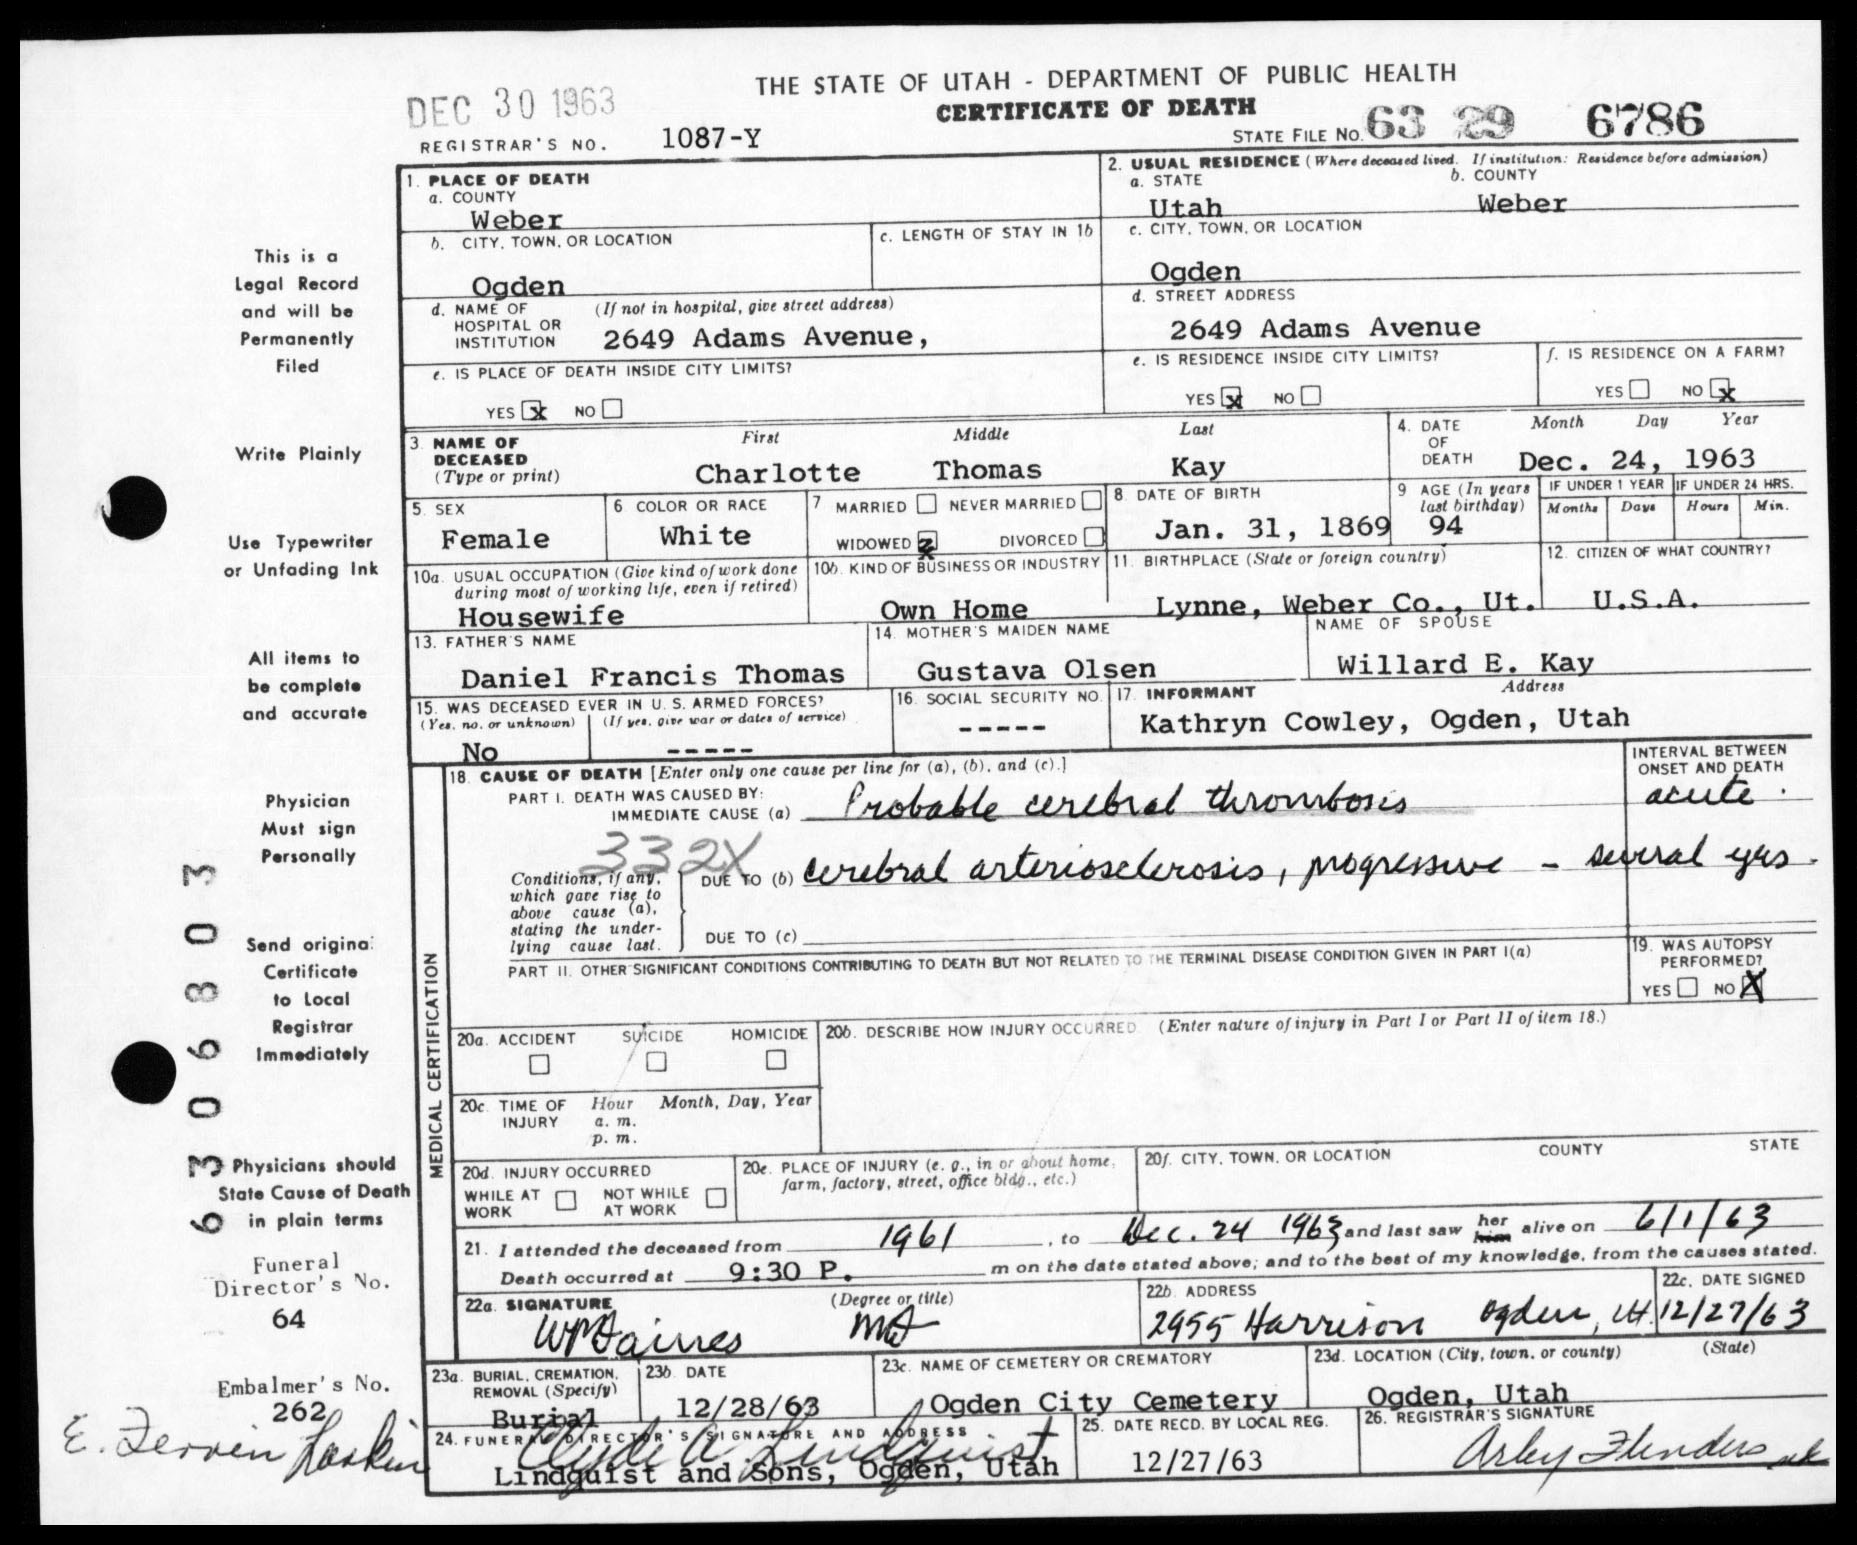 THE STATE OF UTAH - DEPARTMENT OF PUBLIC HEALTH
DEC 30 1963
CERTIFICATE OF DEATH
REGISTRAR'S NO. 1087-Y
STATE FILE NO. 63 29 6786
1. PLACE OF DEATH
a. COUNTY
Weber
2. USUAL RESIDENCE (Where deceased lived. If institution: Residence before admission)
a. STATE b. COUNTY
Utah Weber
b. CITY, TOWN, OR LOCATION
Ogden
c. LENGTH OF STAY IN 1b
c. CITY, TOWN, OR LOCATION
Ogden
d. NAME OF HOSPITAL OR INSTITUTION (If not in hospital, give street address)
2649 Adams Avenue,
d. STREET ADDRESS
2649 Adams Avenue
e. IS PLACE OF DEATH INSIDE CITY LIMITS?
YES x NO
e. IS RESIDENCE INSIDE CITY LIMITS?
YES x NO
f. IS RESIDENCE ON A FARM?
YES NO x
3. NAME OF DECEASED (Type or print)
First Middle Last
Charlotte Thomas Kay
4. DATE OF DEATH Month Day Year
Dec. 24, 1963
5. SEX
Female
6. COLOR OR RACE
White
7. MARRIED NEVER MARRIED
WIDOWED x DIVORCED
8. DATE OF BIRTH
Jan. 31, 1869
9 AGE (In years last birthday)
94
IF UNDER 1 YEAR IF UNDER 24 HRS.
Months Days Hours Min.
10a. USUAL OCCUPATION (Give kind of work done during most of working life, even if retired)
Housewife
10b. KIND OF BUSINESS OR INDUSTRY
Own Home
11. BIRTHPLACE (State or foreign country)
Lynne, Weber Co., Ut.
12. CITIZEN OF WHAT COUNTRY?
U.S.A.
13. FATHER'S NAME
Daniel Francis Thomas
14. MOTHER'S MAIDEN NAME
Gustava Olsen
NAME OF SPOUSE
Willard E. Kay
15. WAS DECEASED EVER IN U. S. ARMED FORCES?
(Yes, no, or unknown) (If yes, give war or dates of service)
No -----
16. SOCIAL SECURITY NO.
-----
17. INFORMANT Address
Kathryn Cowley, Ogden, Utah
MEDICAL CERTIFICATION
18. CAUSE OF DEATH [Enter only one cause per line for (a), (b), and (c).]
INTERVAL BETWEEN ONSET AND DEATH
PART I. DEATH WAS CAUSED BY:
IMMEDIATE CAUSE (a) Probable cerebral thrombosis acute.
332X
Conditions, if any, which gave rise to above cause (a), stating the underlying cause last.
DUE TO (b) cerebral arteriosclerosis, progressive - several yrs.
DUE TO (c)
PART II. OTHER SIGNIFICANT CONDITIONS CONTRIBUTING TO DEATH BUT NOT RELATED TO THE TERMINAL DISEASE CONDITION GIVEN IN PART I(a)
19. WAS AUTOPSY PERFORMED?
YES NO X
20a. ACCIDENT SUICIDE HOMICIDE
20b. DESCRIBE HOW INJURY OCCURRED. (Enter nature of injury in Part I or Part II of item 18.)
20c. TIME OF INJURY Hour Month, Day, Year
a. m.
p. m.
20d. INJURY OCCURRED
WHILE AT WORK NOT WHILE AT WORK
20e. PLACE OF INJURY (e. g., in or about home, farm, factory, street, office bldg., etc.)
20f. CITY, TOWN, OR LOCATION COUNTY STATE
21. I attended the deceased from 1961, to Dec. 24 1963 and last saw her him alive on 6/1/63
Death occurred at 9:30 P. m on the date stated above; and to the best of my knowledge, from the causes stated.
22a. SIGNATURE (Degree or title)
MD
22b. ADDRESS
2955 Harrison Ogden, Ut.
22c. DATE SIGNED
12/27/63
23a. BURIAL, CREMATION, REMOVAL (Specify)
Burial
23b. DATE
12/28/63
23c. NAME OF CEMETERY OR CREMATORY
Ogden City Cemetery
23d. LOCATION (City, town, or county) (State)
Ogden, Utah
24. FUNERAL DIRECTOR'S SIGNATURE AND ADDRESS
Clyde A. Lindquist
Lindquist and Sons, Ogden, Utah
25. DATE RECD. BY LOCAL REG.
12/27/63
26. REGISTRAR'S SIGNATURE
This is a
Legal Record
and will be
Permanently
Filed
Write Plainly
Use Typewriter
or Unfading Ink
All items to
be complete
and accurate
Physician
Must sign
Personally
Send original
Certificate
to Local
Registrar
Immediately
Physicians should
State Cause of Death
in plain terms
Funeral
Director's No.
64
Embalmer's No.
262
6 3 0 6 8 0 3